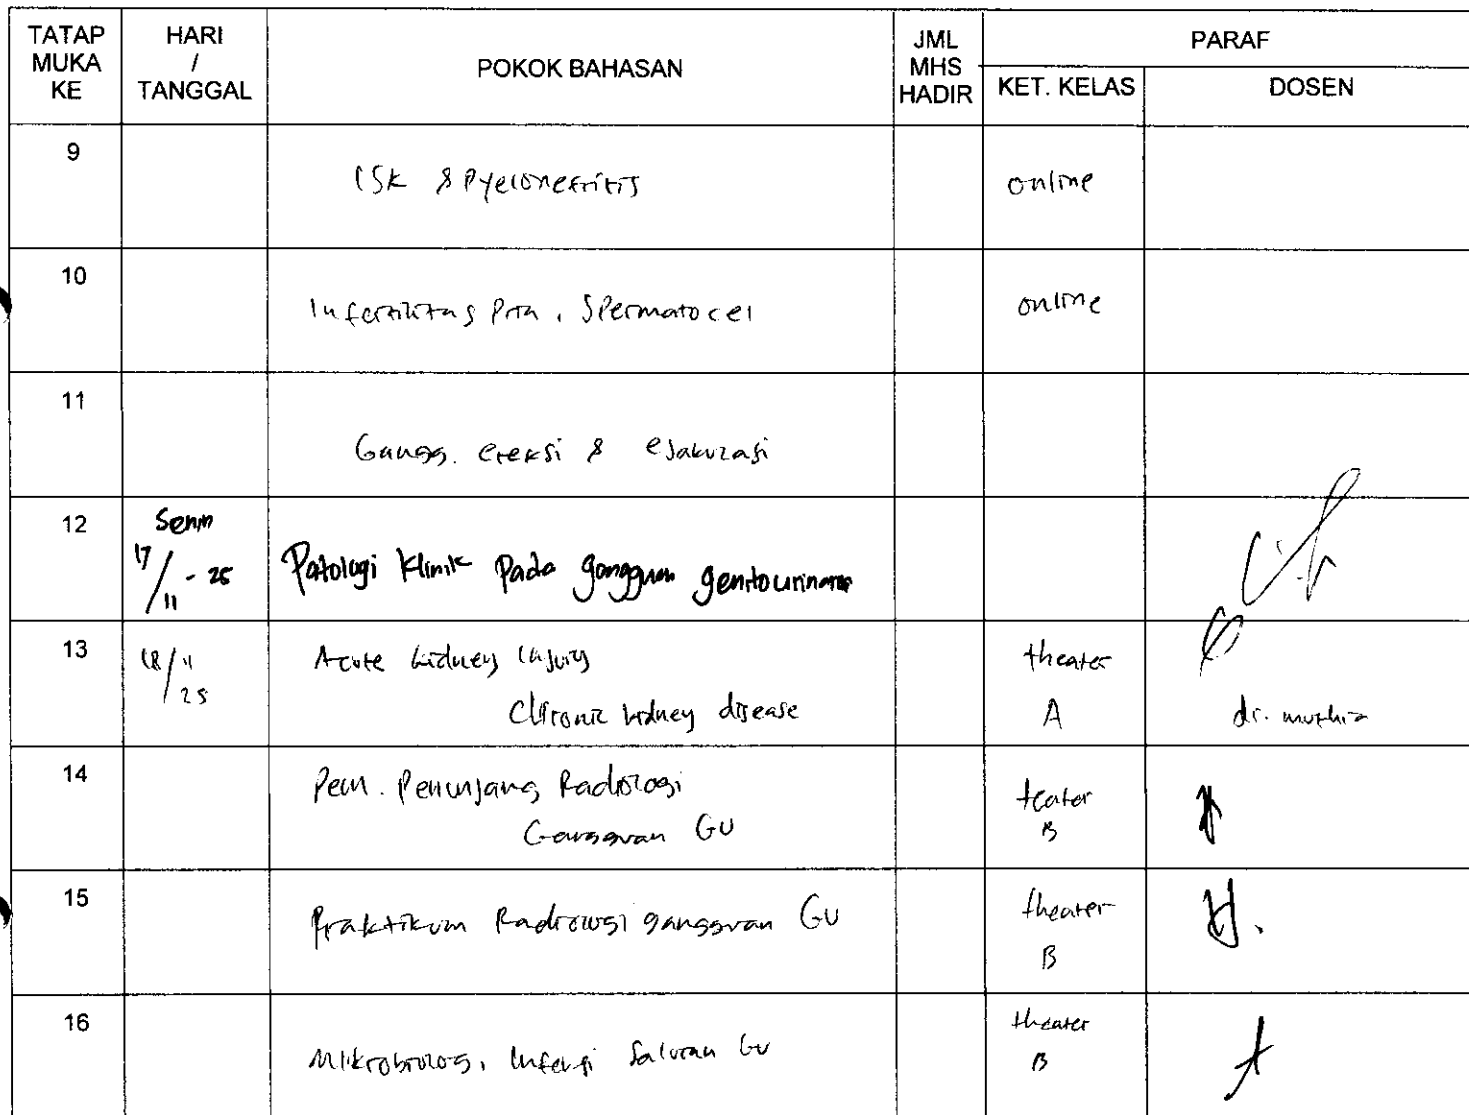 TATAP MUKA KE
HARI / TANGGAL
POKOK BAHASAN
JML MHS HADIR
PARAF
KET. KELAS
DOSEN
9
ISK & Pyelonefritis
online
10
Infertilitas Pria, Spermatocel
online
11
Gangg. ereksi & ejakulasi
12
Senin
17/11 - 25
Patologi Klinik pada gangguan genitourinaria
13
18/11 25
Acute kidney injury
Chronic kidney disease
theater
A
dr. muthia
14
Pem. Penunjang Radiologi
Gangguan GU
teater
B
15
Praktikum Radiologi gangguan GU
theater
B
16
Mikrobiologi Infeksi Saluran GU
theater
B